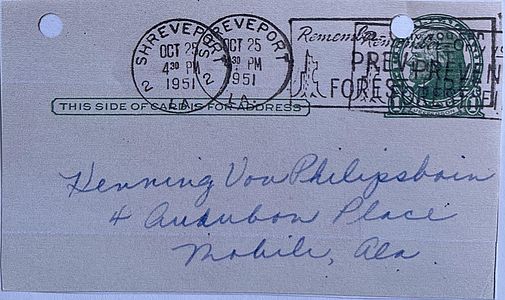 SHREVEPORT SHREVEPORT
OCT 25 OCT 25
4 30 PM 30 PM
1951 1951
2 LA. 2 LA.
Remember Remember
PRE PREVEN
FORES FORES FI
THIS SIDE OF CARD IS FOR ADDRESS
Henning Von Philipsborn
4 Audubon Place
Mobile, Ala.